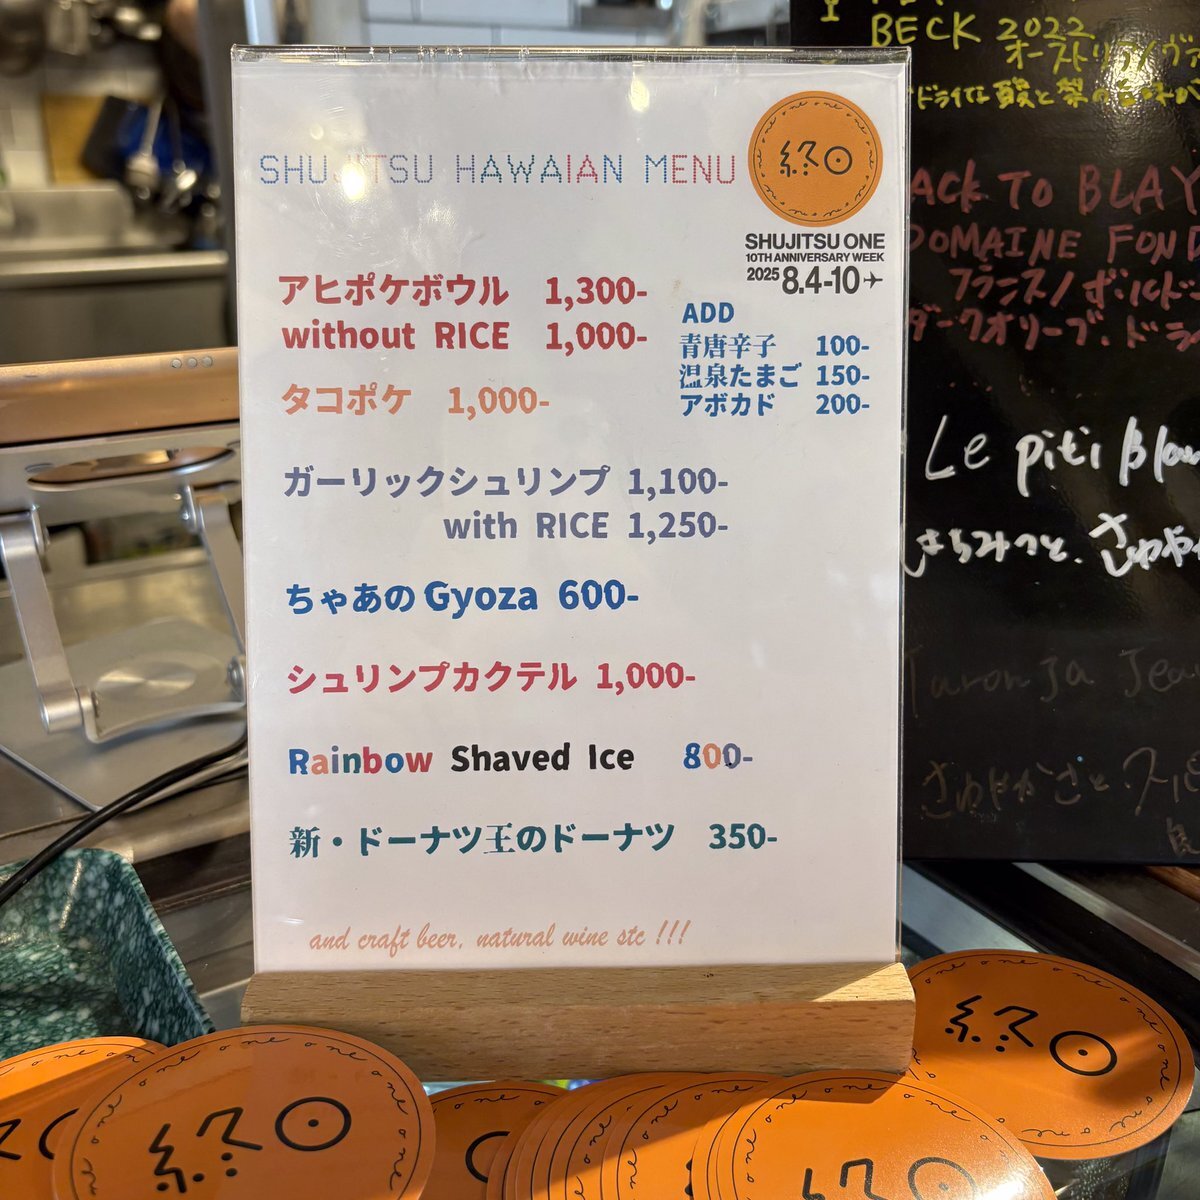 SHUJITSU HAWAIIAN MENU
終日
SHUJITSU ONE
10TH ANNIVERSARY WEEK
2025 8.4-10
アヒポケボウル 1,300-
without RICE 1,000-
タコポケ 1,000-
ADD
青唐辛子 100-
温泉たまご 150-
アボカド 200-
ガーリックシュリンプ 1,100-
with RICE 1,250-
ちゃあのGyoza 600-
シュリンプカクテル 1,000-
Rainbow Shaved Ice 800-
新・ドーナツ王のドーナツ 350-
and craft beer, natural wine stc !!!
BECK 2022
オーストリア/ヴァ
ドライな酸と
ACK TO BLAY
DOMAINE FOND
フランス/ボルドー
ダークオリーブ、ドラ
Le piti Blan
はちみつと、さわや
Taronja Jea
さわやかさと、スパ
良
終日
one one one one
終日
one one one one